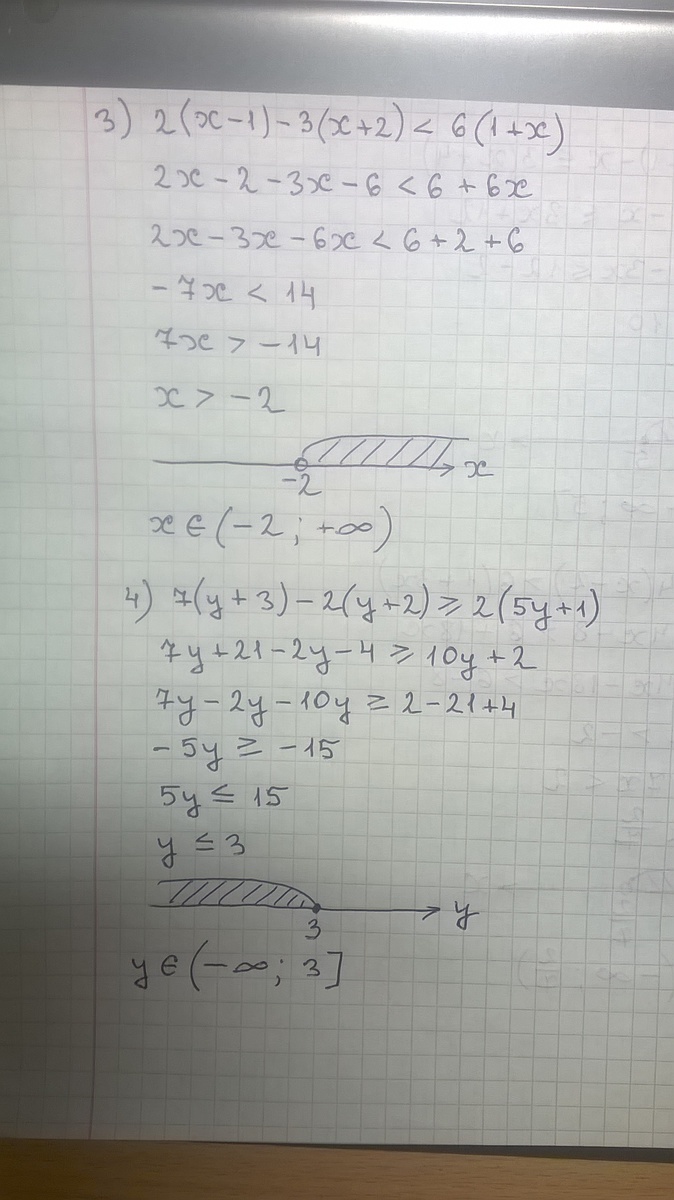 3) 2(x-1)-3(x+2) < 6(1+x)
2x-2-3x-6 < 6+6x
2x-3x-6x < 6+2+6
-7x < 14
7x > -14
x > -2
-2 x
x ∈ (-2; +∞)
4) 7(y+3)-2(y+2) ≥ 2(5y+1)
7y+21-2y-4 ≥ 10y+2
7y-2y-10y ≥ 2-21+4
-5y ≥ -15
5y ≤ 15
y ≤ 3
3 y
y ∈ (-∞; 3]